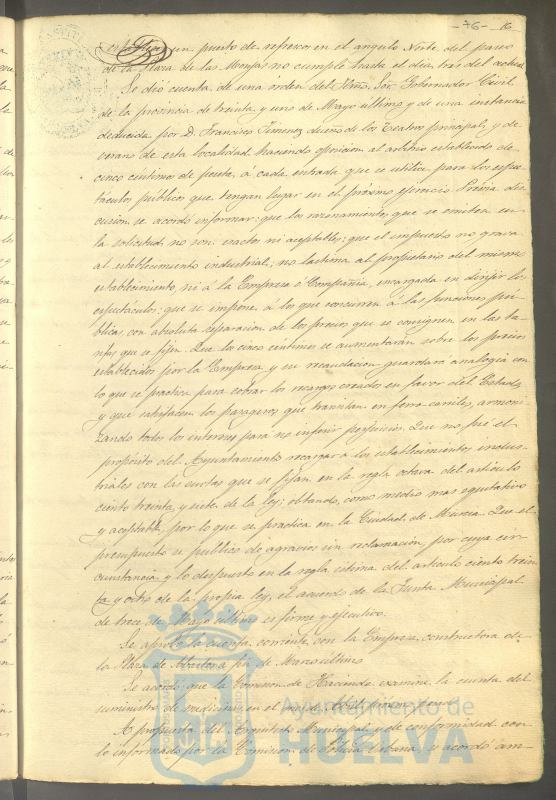 -76- 16
establecer un puesto de refresco en el angulo Norte del paseo
de la Plaza de las Monjas no cumple hasta el dia tres del actual
Se dió cuenta de una orden del Ilmo. Sor. Gobernador Civil
de la provincia de treinta y uno de Mayo ultimo y de una instancia
deducida por D. Francisco Jimenez dueño de los Teatros principal, y de
verano de esta localidad haciendo oposicion al arbitrio establecido de
cinco centimos de peseta, á cada entrada que se utilice, para los espec-
táculos públicos que tengan lugar en el próximo ejercicio. Previa dis-
cusion se acordó informar: que los razonamientos que se emiten en
la solicitud no son exactos ni aceptables; que el impuesto no grava
al establecimiento industrial; no lastima al propietario del mismo
establecimiento, ni á la Empresa ó Compañia, encargada en dirijir los
espectáculos; que se impone á los que concurren á las funciones pú-
blicas, con absoluta separacion de los precios que se consignen en las ta-
rifas que se fijen. Que los cinco centimos se aumentarán sobre los precios
establecidos por la Empresa y su recaudacion guardará analogia con
lo que se practica para cobrar los recargos creados en favor del Estado
y que satisfacen los pasageros que transitan en ferro-carriles, armoni-
zando todos los intereses para no inferir perjuicios. Que no fué el
propósito del Ayuntamiento recargar á los establecimientos indus-
triales con las cuotas que se fijan en la regla octava del articulo
ciento treinta y siete de la ley; optando, como medio mas equitativo
y aceptable, por lo que se practica en la Ciudad de Murcia. Que el
presupuesto se publicó de agravios sin reclamacion, por cuya cir-
cunstancia y lo dispuesto en la regla última del articulo ciento trein-
ta y ocho de la propia ley, el acuerdo de la Junta Municipal
de trece de Mayo último es firme y ejecutivo.
Se aprobó la cuenta corriente con la Empresa constructora de
la Plaza de Abastos á fin de Marzo último.
Se acordó que la Comision de Hacienda examine la cuenta del
suministro de medicinas en el mes de Abril
A propuesta del Arquitecto Municipal y de conformidad con
lo informado por la Comision de Policia Urbana, se acordó am-
Ayuntamiento de
HUELVA